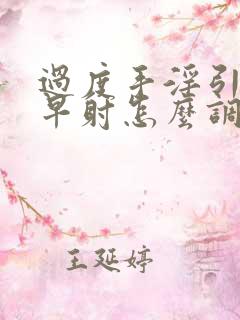 過度手淫引
早射怎麼調
王延婷